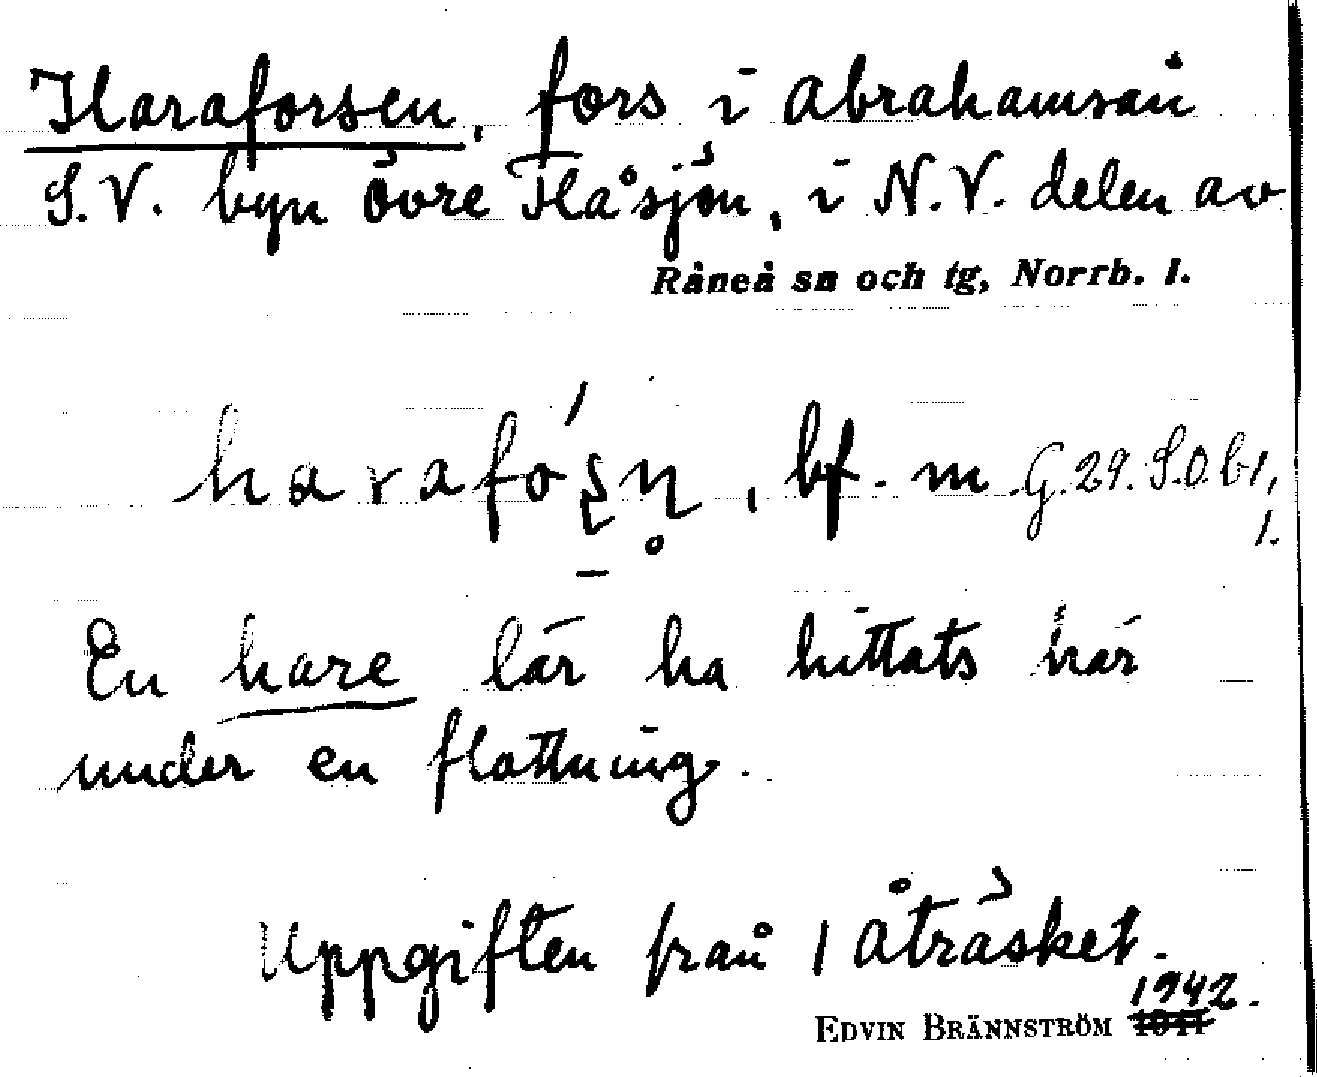 Haraforsen, fors i Abrahamsån
S.V. byn Övre Flåsjön, i N.V. delen av
Råneå sn och tg, Norrb. l.
harafo̱ʂn̥, bf. m G. 29. S.O. b1,
1.
En hare lär ha hittats här
under en flottning.
Uppgiften från 1 Åträsket.
1942.
EDVIN BRÄNNSTRÖM 1941